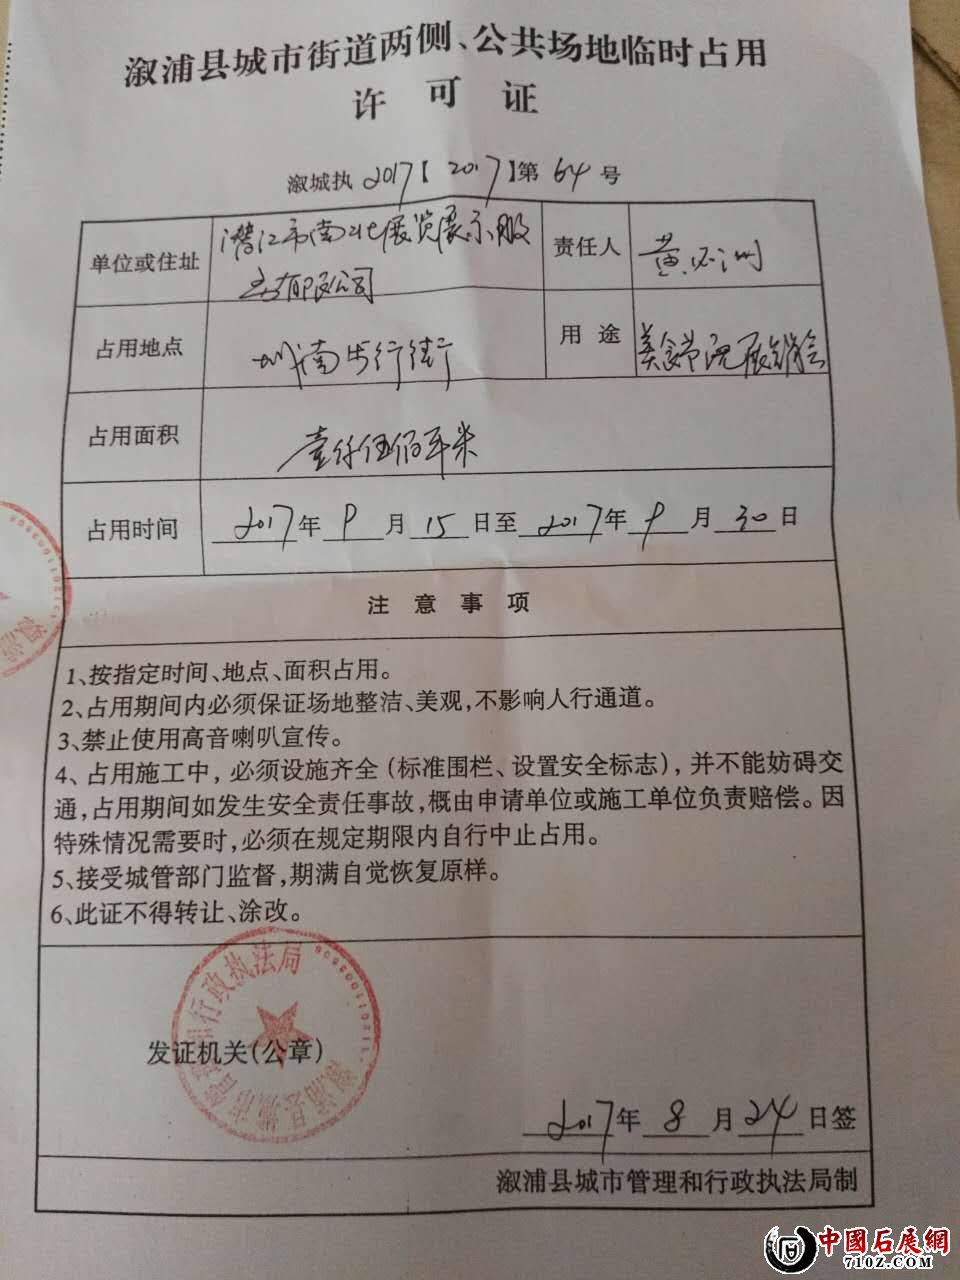 溆浦县城市街道两侧、公共场地临时占用
许可证
溆城执2017【2017】第64号
单位或住址
潜江市南北展览展示服
务有限公司
责任人
黄
占用地点
步行街
用途
美食节 展销会
占用面积
壹仟伍佰平米
占用时间
2017年9月15日至2017年9月30日
注意事项
1、按指定时间、地点、面积占用。
2、占用期间内必须保证场地整洁、美观,不影响人行通道。
3、禁止使用高音喇叭宣传。
4、占用施工中,必须设施齐全(标准围栏、设置安全标志),并不能妨碍交
通,占用期间如发生安全责任事故,概由申请单位或施工单位负责赔偿。因
特殊情况需要时,必须在规定期限内自行中止占用。
5、接受城管部门监督,期满自觉恢复原样。
6、此证不得转让、涂改。
溆浦县城市管理和行政执法局
发证机关(公章)
2017年8月24日签
溆浦县城市管理和行政执法局制
中國石展網
710Z.COM